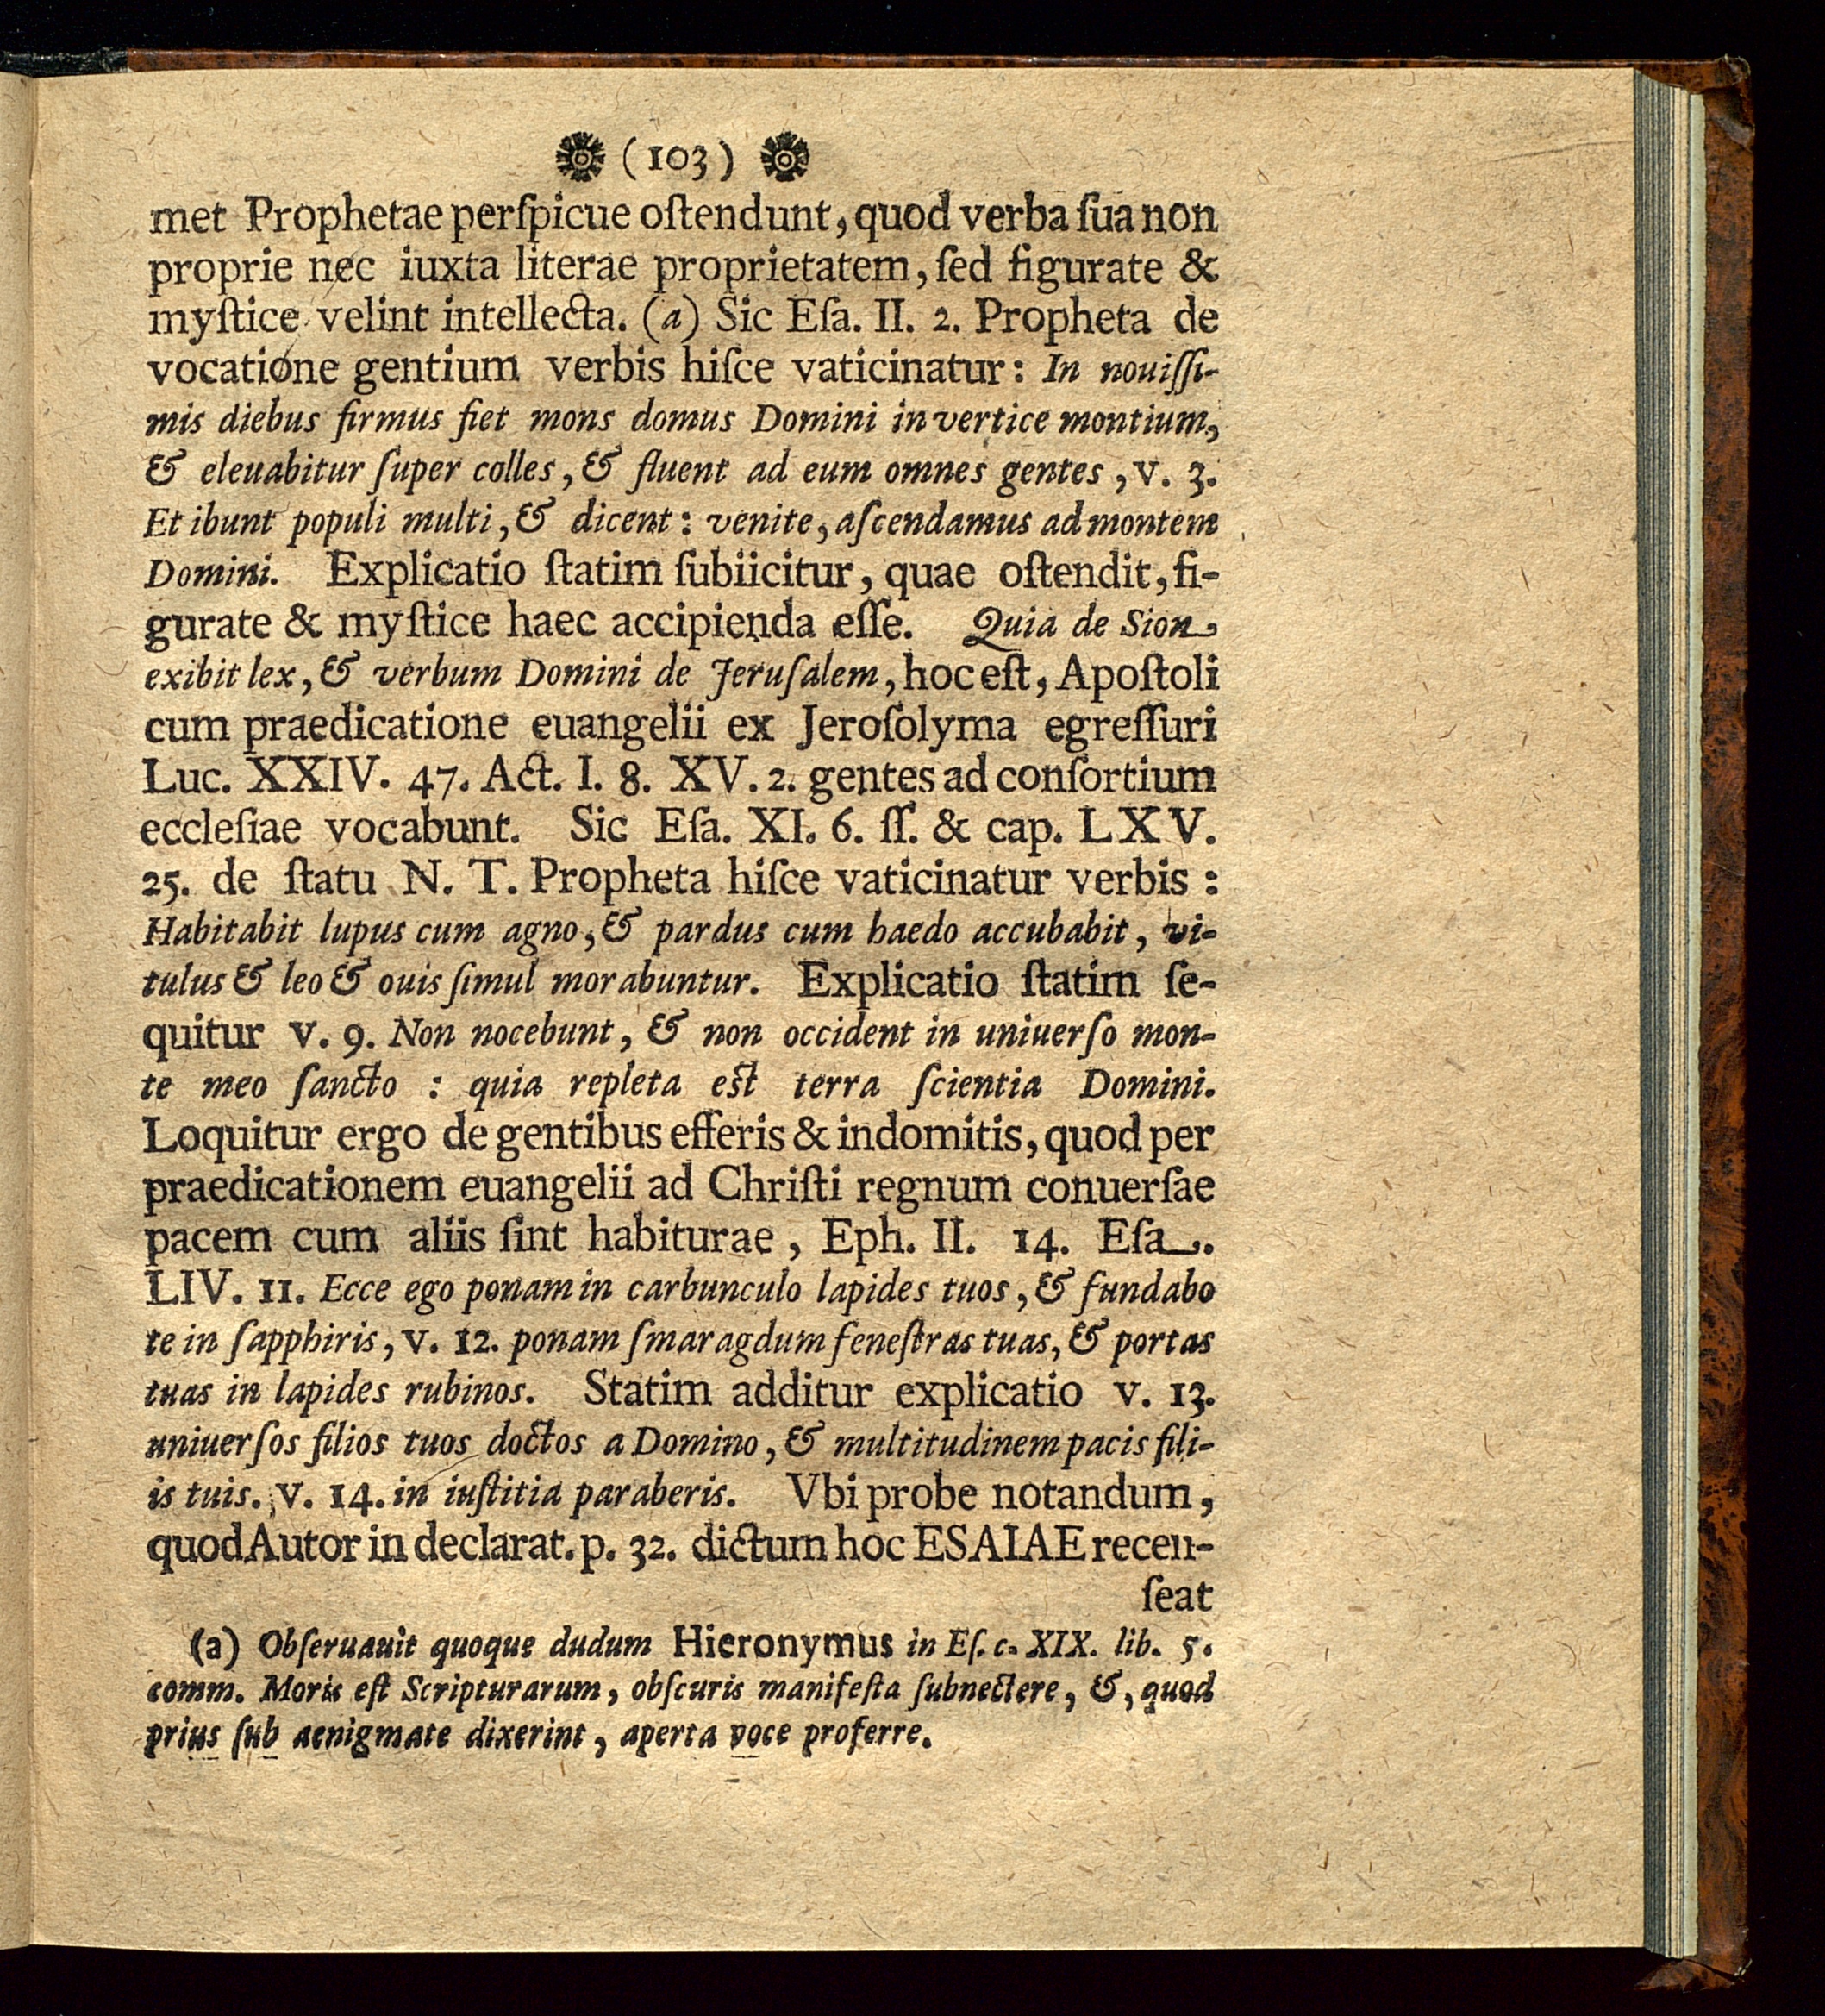 (103)
met Prophetae perſpicue oſtendunt, quod verba ſua non
proprie nec iuxta literae proprietatem, ſed figurate &
myſtice velint intellecta. (a) Sic Eſa. II. 2. Propheta de
vocatione gentium verbis hiſce vaticinatur: In nouiſſi-
mis diebus firmus fiet mons domus Domini in vertice montium,
& eleuabitur ſuper colles, & fluent ad eum omnes gentes, v. 3.
Et ibunt populi multi, & dicent: venite, aſcendamus ad montem
Domini. Explicatio ſtatim ſubiicitur, quae oſtendit, fi-
gurate & myſtice haec accipienda eſſe. Quia de Sion
exibit lex, & verbum Domini de Jeruſalem, hoc eſt, Apoſtoli
cum praedicatione euangelii ex Jeroſolyma egreſſuri
Luc. XXIV. 47. Act. I. 8. XV. 2. gentes ad conſortium
eccleſiae vocabunt. Sic Eſa. XI. 6. ſſ. & cap. LXV.
25. de ſtatu N. T. Propheta hiſce vaticinatur verbis:
Habitabit lupus cum agno, & pardus cum haedo accubabit, vi-
tulus & leo & ouis ſimul morabuntur. Explicatio ſtatim ſe-
quitur v. 9. Non nocebunt, & non occident in uniuerſo mon-
te meo ſancto: quia repleta eſt terra ſcientia Domini.
Loquitur ergo de gentibus efferis & indomitis, quod per
praedicationem euangelii ad Chriſti regnum conuerſae
pacem cum aliis ſint habiturae, Eph. II. 14. Eſa.
LIV. 11. Ecce ego ponam in carbunculo lapides tuos, & fundabo
te in ſapphiris, v. 12. ponam ſmaragdum feneſtras tuas, & portas
tuas in lapides rubinos. Statim additur explicatio v. 13.
uniuerſos filios tuos doctos a Domino, & multitudinem pacis fili-
is tuis. v. 14. in iuſtitia paraberis. Vbi probe notandum,
quod Autor in declarat. p. 32. dictum hoc ESAIAE recen-
ſeat
(a) Obſeruauit quoque dudum Hieronymus in Eſ. c. XIX. lib. 5.
comm. Moris eſt Scripturarum, obſcuris manifeſta ſubnectere, &, quod
prius ſub aenigmate dixerint, aperta voce proferre.